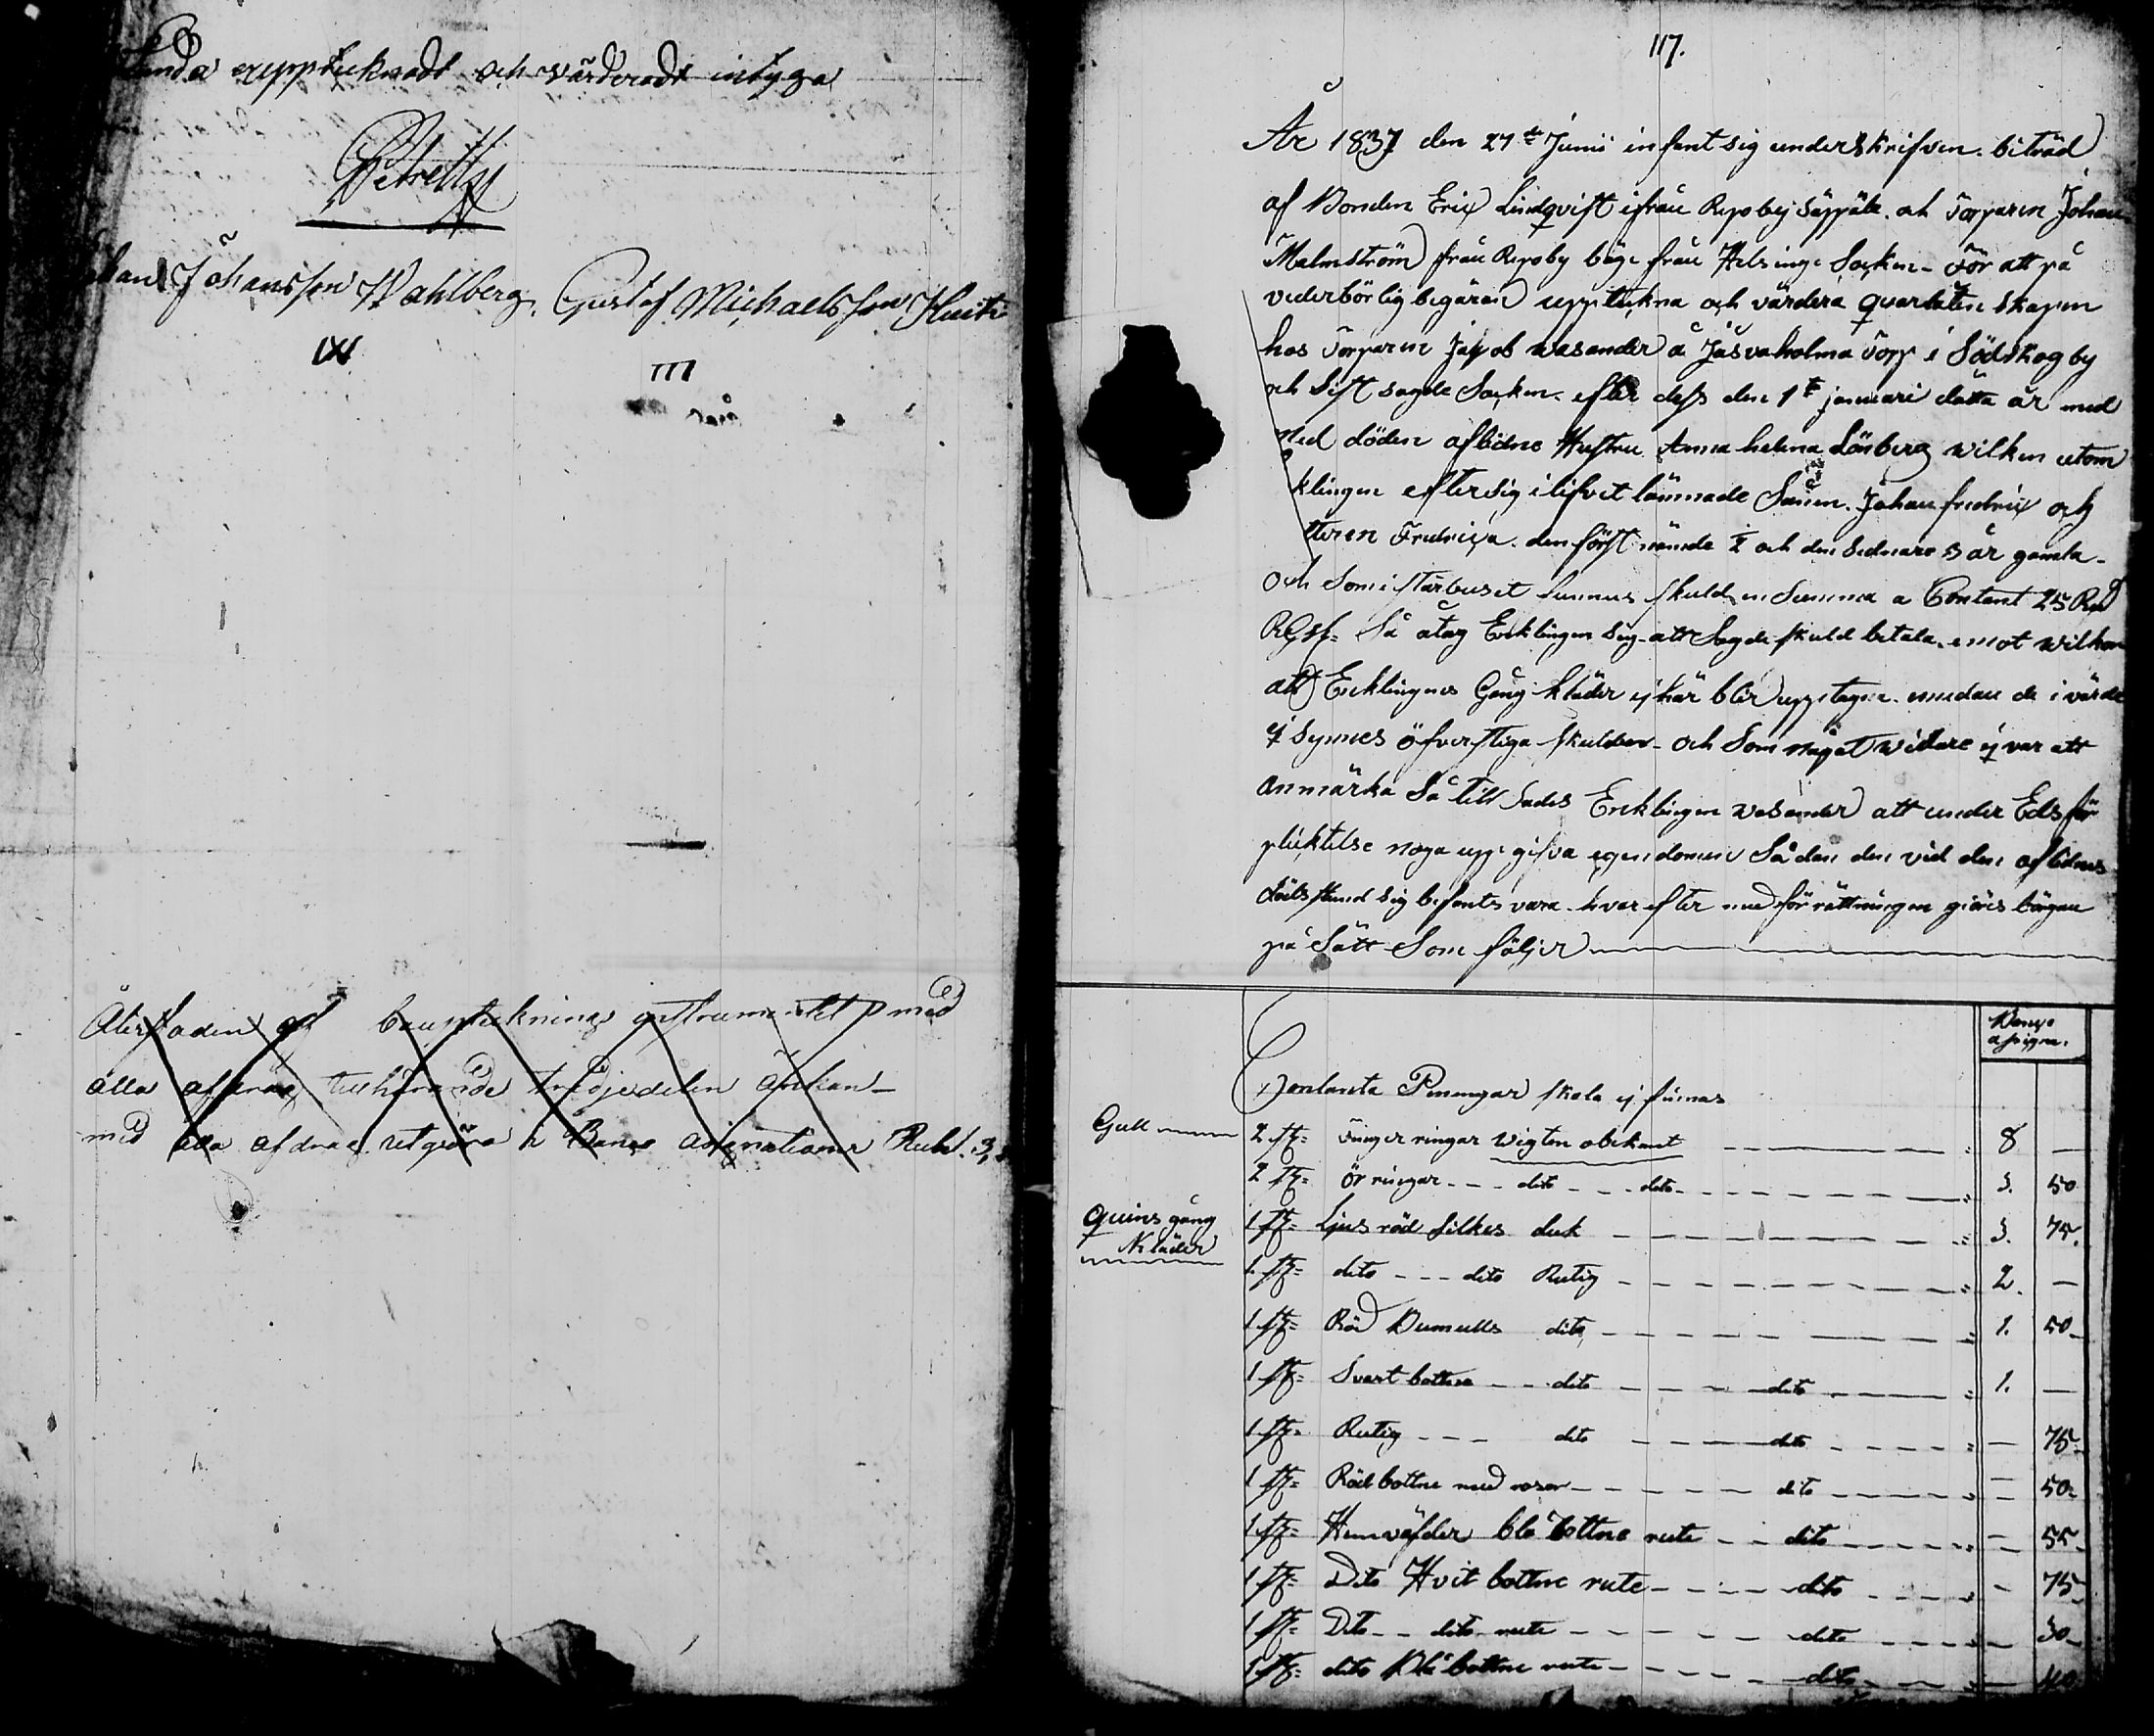 upptecknadt och värderadt intyga
Johansson Wahlberg. Gustaf Michaelsson
III
Återstaden af med
alla afdrag tillhörande tredjedelen
med alla afdrag utgöra i Banco Rubl. 3,
117.
År 1837 den 27de Junii infant sig underskrifven. biträd
af Bonden Eric Lindqvist ifrån Repoby Säppäle. och Torparen Johan
Malmström från Repoby bägge från Helsinge Socken. För att på
vederbörlig begäran uppteckna och värdera qvarlåtenskapen
hos Torparen Jacob Wasander å Torp i Södskog by
och sist sagde Socken. efter dess den 1ste januari detta år med
med döden aflidne Hustru Anna helena Lönberg wilken utom
klingen efter sig i lifvet lämnade Sonen. Johan fredric och
tteren Fredrica. den först nämde och den sednare 3 år gamla.
Och som i stärbuset funnes skuld en Summa a Contant 25
Så åtog Encklingen sig att Sagde skuld betala. emot wilkor
att Encklingens Gång kläder ej här blir upptagne. medan de i värde
ej synnes öfverstiga skulden. och Som något widare ej var att
anmärka Så till sades Encklingen Wasander att under Edsför
pliktelse noga uppgifva egendomen Sådan den vid den aflidnes
dödsstund sig befants vara. hvarefter med förrättningen giöres början
på Sätt Som följer
Banco
assigna.
Contanta Penningar skola ej finnas
Gull 2 st= Fingerringar wigten obekant 8 —
2 st= örringar - - - dito - - dito 3. 50
Quins gång
Kläder
1 st= Ljus röd Silkes duk 3. 75.
1 st= dito - - - dito Rutig 2. —
1 st= Röd Bumulls dito 1. 50
1 st= Svart bottne - - dito - dito 1. —
1 st= Rutig - - - dito - dito — 75
1 st= Röd bottne med rosor - dito — 50
1 st= Hemväfder blå bottne rute - - dito — 55
1 st= Dito Hvit bottne rute - - dito — 75
1 st= Dito - - dito rute - dito — 30
1 st= dito Blå bottne rute - dito — 40